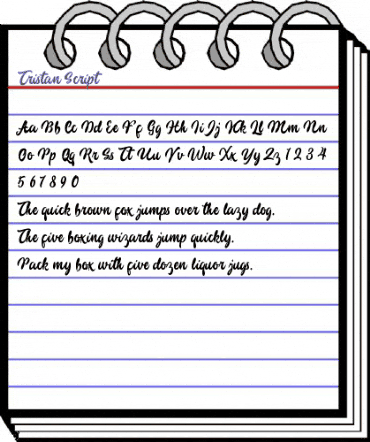 Tristan Script
Aa Bb Cc Dd Ee Ff Gg Hh Ii Jj Kk Ll Mm Nn
Oo Pp Qq Rr Ss Tt Uu Vv Ww Xx Yy Zz 1 2 3 4
5 6 7 8 9 0
The quick brown fox jumps over the lazy dog.
The five boxing wizards jump quickly.
Pack my box with five dozen liquor jugs.